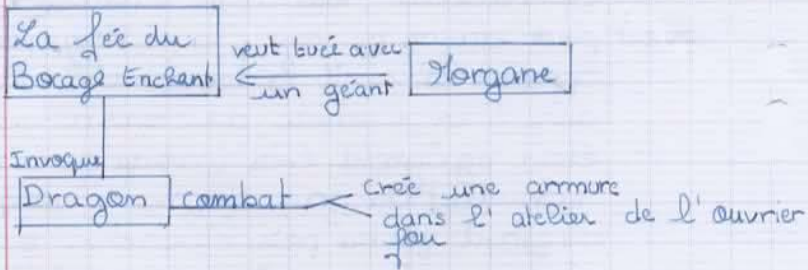 La fée du
Bocage Enchant
veut tuée avec
un géant
Morgane
Invoque
Dragon combat
crée une armure
dans l'atelier de l'ouvrier
fou